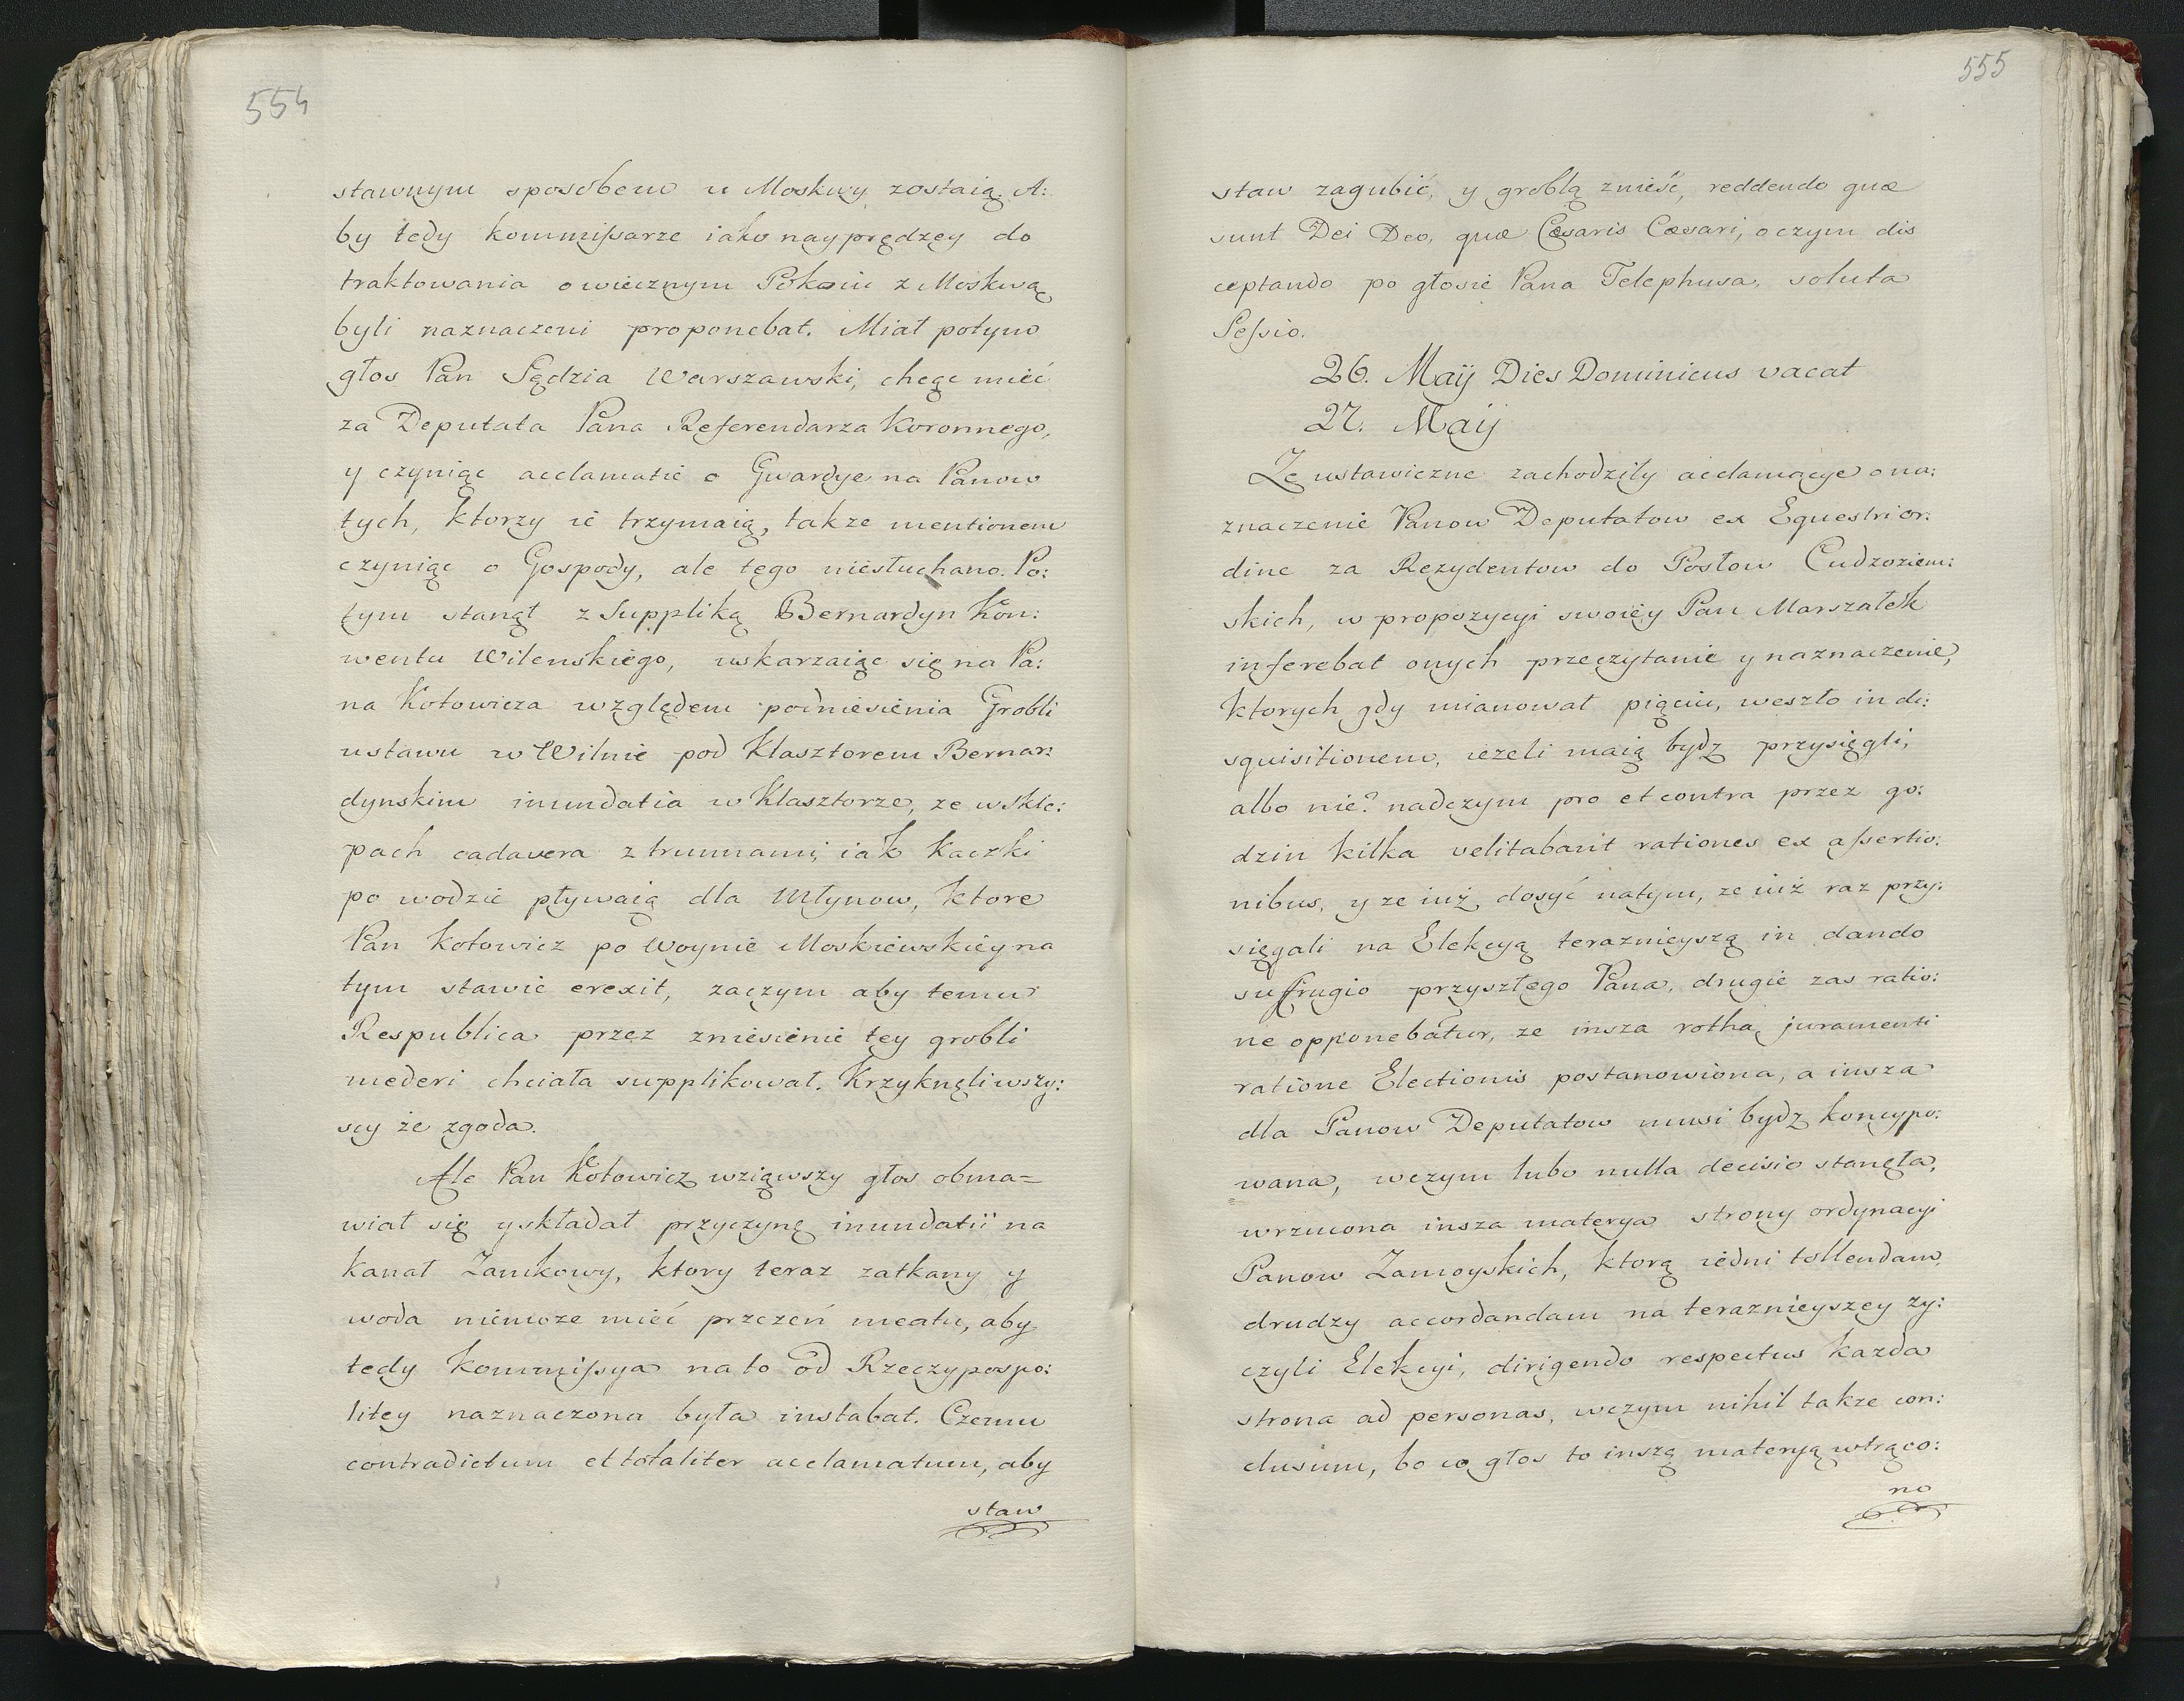 554
stawnym sposobem u Moskwy zostaią. A:
by tedy kommissarze iako nayprędzey do
traktowania o wiecznym Pokoiu z Moskwą
byli naznaczeni proponebat. Miał potym
głos Pan Sędzia Warszawski, chcąc mieć
za Deputata Pana Referendarza Koronnego,
y czyniąc acclamatie o Gwardye na Panow
tych, ktorzy ie trzymaią, także mentionem
czyniąc o Gospody, ale tego niesłuchano. Po:
tym stanął z Suppliką Bernardyn Kon:
wentu Wilenskiego, uskarzaiąc się na Pa:
na Kotowicza względem podniesienia Grobli
ustawu w Wilnie pod Klasztorem Bernar:
dynskim inundatia w Klasztorze, ze w Skle:
pach cadavera z trunnami, iak Kaczki
po wodzie pływaią dla Młynow, ktore
Pan Kotowicz po Woynie Moskiewskiey na
tym stawie erexit, zaczym aby temu
Respublica przez zniesienie tey grobli
mederi chciała supplikował. Krzyknęli wszy:
scy że zgoda.
Ale Pan Kotowicz wziąwszy głos obma=
wiał się y składał przyczynę inundatii na
kanał Zamkowy, ktory teraz zatkany y
woda niemoze mieć przezeń meatu, aby
tedy Kommissya na to od Rzeczypospo:
litey naznaczona była instabat. Czemu
contradictum et totaliter acclamatum, aby
staw
555
staw zagubić, y groblą znieść, reddendo quæ
sunt Dei Deo, quæ Cæsaris Cæsari, o czym dis
ceptando po głosie Pana Telephusa, soluta
Sessio.
26. Maij Dies Dominicus vacat
27. Maij
Ze ustawiczne zachodziły acclamacye o na:
znaczenie Panow Deputatow ex Equestri or:
dine za Rezydentow do Posłow Cudzoziem:
skich, w propozycyi swoiey Pan Marszałek
inferebat onych przeczytanie y naznaczenie,
ktorych gdy mianował pięciu, weszło in di:
squisitionem, iezeli maią bydz przysięgli,
albo nie? nad czym pro et contra przez go:
dzin kilka velitabant rationes ex assertio:
nibus, y ze iuż dosyć natym, ze iuż raz przy:
sięgali na Elekcyą teraznieyszą in dando
suffragio przyszłego Pana, drugie zas ratio:
ne opponebatur, ze insza rotha juramenti
ratione Electionis postanowiona, a insza
dla Panow Deputatow musi bydz koncypo:
wana, w czym lubo nulla decisio stanęła,
wrzucona insza materya strony ordynacyi
Panow Zamoyskich, ktorą iedni tollendam,
drudzy accordandam na teraznieyszey zy:
czyli Elekcyi, dirigendo respectus kazda
strona ad personas, w czym nihil takze con:
clusum, bo co głos to inszą materyą wtrąco:
no